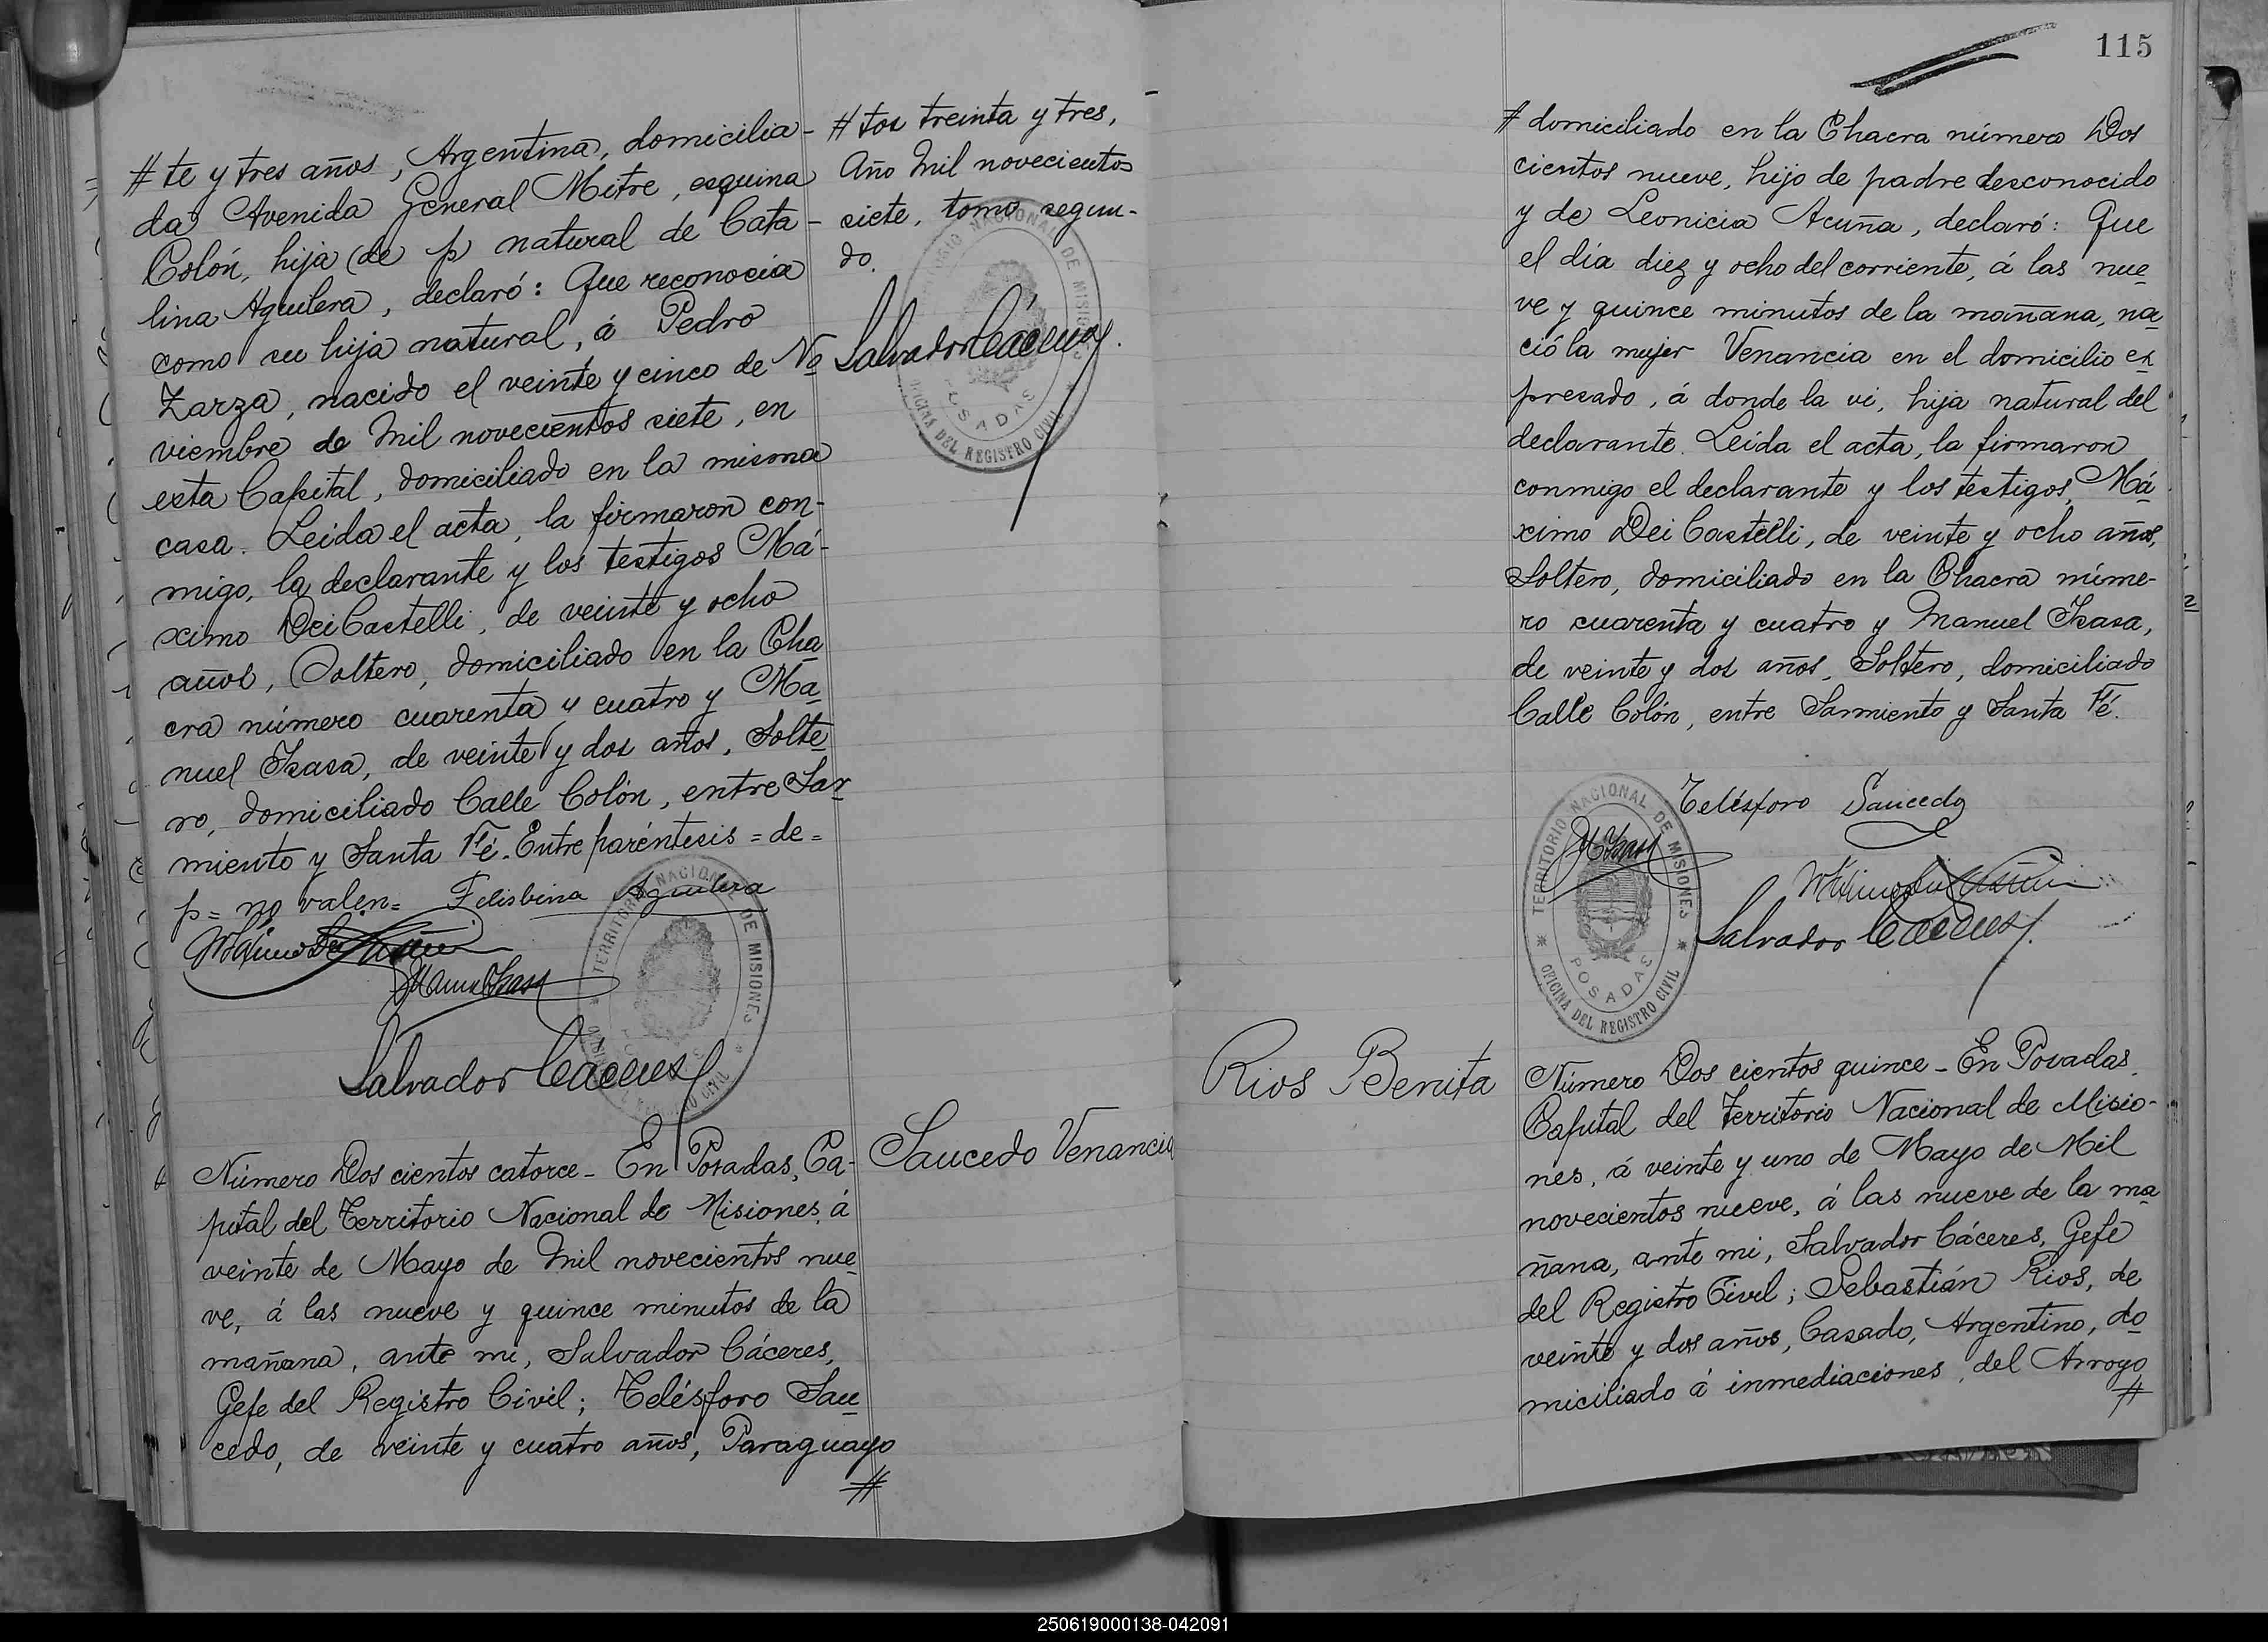 # te y tres años, Argentina, domicilia-
da Avenida General Mitre, esquina
Colón, hija (de p) natural de Cata-
lina Aguilera, declaró: Que reconocia
como su hija natural, á Pedro
Zarza, nacido el veinte y cinco de No
viembre de Mil novecientos siete, en
esta Capital, domiciliado en la misma
casa. Leida el acta, la firmaron con-
migo, la declarante y los testigos Má-
ximo Dei Castelli, de veinte y ocho
años, Soltero, domiciliado en la Cha
cra número cuarenta y cuatro y Ma
nuel Isasa, de veinte y dos años, Solte
ro, domiciliado Calle Colón, entre Sar
miento y Santa Fé. Entre paréntesis = de =
p = no valen =
Felisbina Aguilera
Salvador Cáceres
# tos treinta y tres,
Año Mil novecientos
siete, tomo segun-
do.
Salvador Cáceres
TERRITORIO NACIONAL DE MISIONES
POSADAS
OFICINA DEL REGISTRO CIVIL
Saucedo Venancia
Número Dos cientos catorce - En Posadas, Ca-
pital del Territorio Nacional de Misiones, á
veinte de Mayo de Mil novecientos nue
ve, á las nueve y quince minutos de la
mañana, ante mi, Salvador Cáceres,
Gefe del Registro Civil; Telésforo Sau
cedo, de veinte y cuatro años, Paraguayo
#
115
# domiciliado en la Chacra número Dos
cientos nueve, hijo de padre desconocido
y de Leonicia Acuña, declaró: Que
el día diez y ocho del corriente, á las nue
ve y quince minutos de la mañana, na
ció la mujer Venancia en el domicilio ex
presado, á donde la vi, hija natural del
declarante. Leida el acta, la firmaron
conmigo el declarante y los testigos, Má
ximo Dei Castelli, de veinte y ocho años,
Soltero, domiciliado en la Chacra núme-
ro cuarenta y cuatro y Manuel Isasa,
de veinte y dos años, Soltero, domiciliado
Calle Colón, entre Sarmiento y Santa Fé.
Telésforo Saucedo
Salvador Cáceres
TERRITORIO NACIONAL DE MISIONES
POSADAS
OFICINA DEL REGISTRO CIVIL
Rios Benita
Número Dos cientos quince - En Posadas,
Capital del Territorio Nacional de Misio-
nes, á veinte y uno de Mayo de Mil
novecientos nueve, á las nueve de la ma
ñana, ante mi, Salvador Cáceres, Gefe
del Registro Civil; Sebastián Rios, de
veinte y dos años, Casado, Argentino, do
miciliado á inmediaciones, del Arroyo
#
250619000138-042091